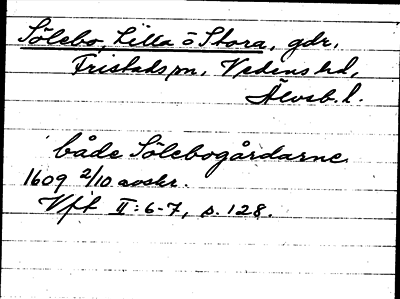 Sölebo, Lilla o Stora, gdr,
Fristads sn, Vedens hd,
Älvsb. l.
både Sölebogårdarne
1609 2/10 avskr.
Vft II:6-7, s. 128.